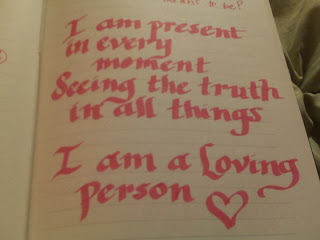 meant to be?
I am present
in every
moment
Seeing the truth
in all things
I am a Loving
person